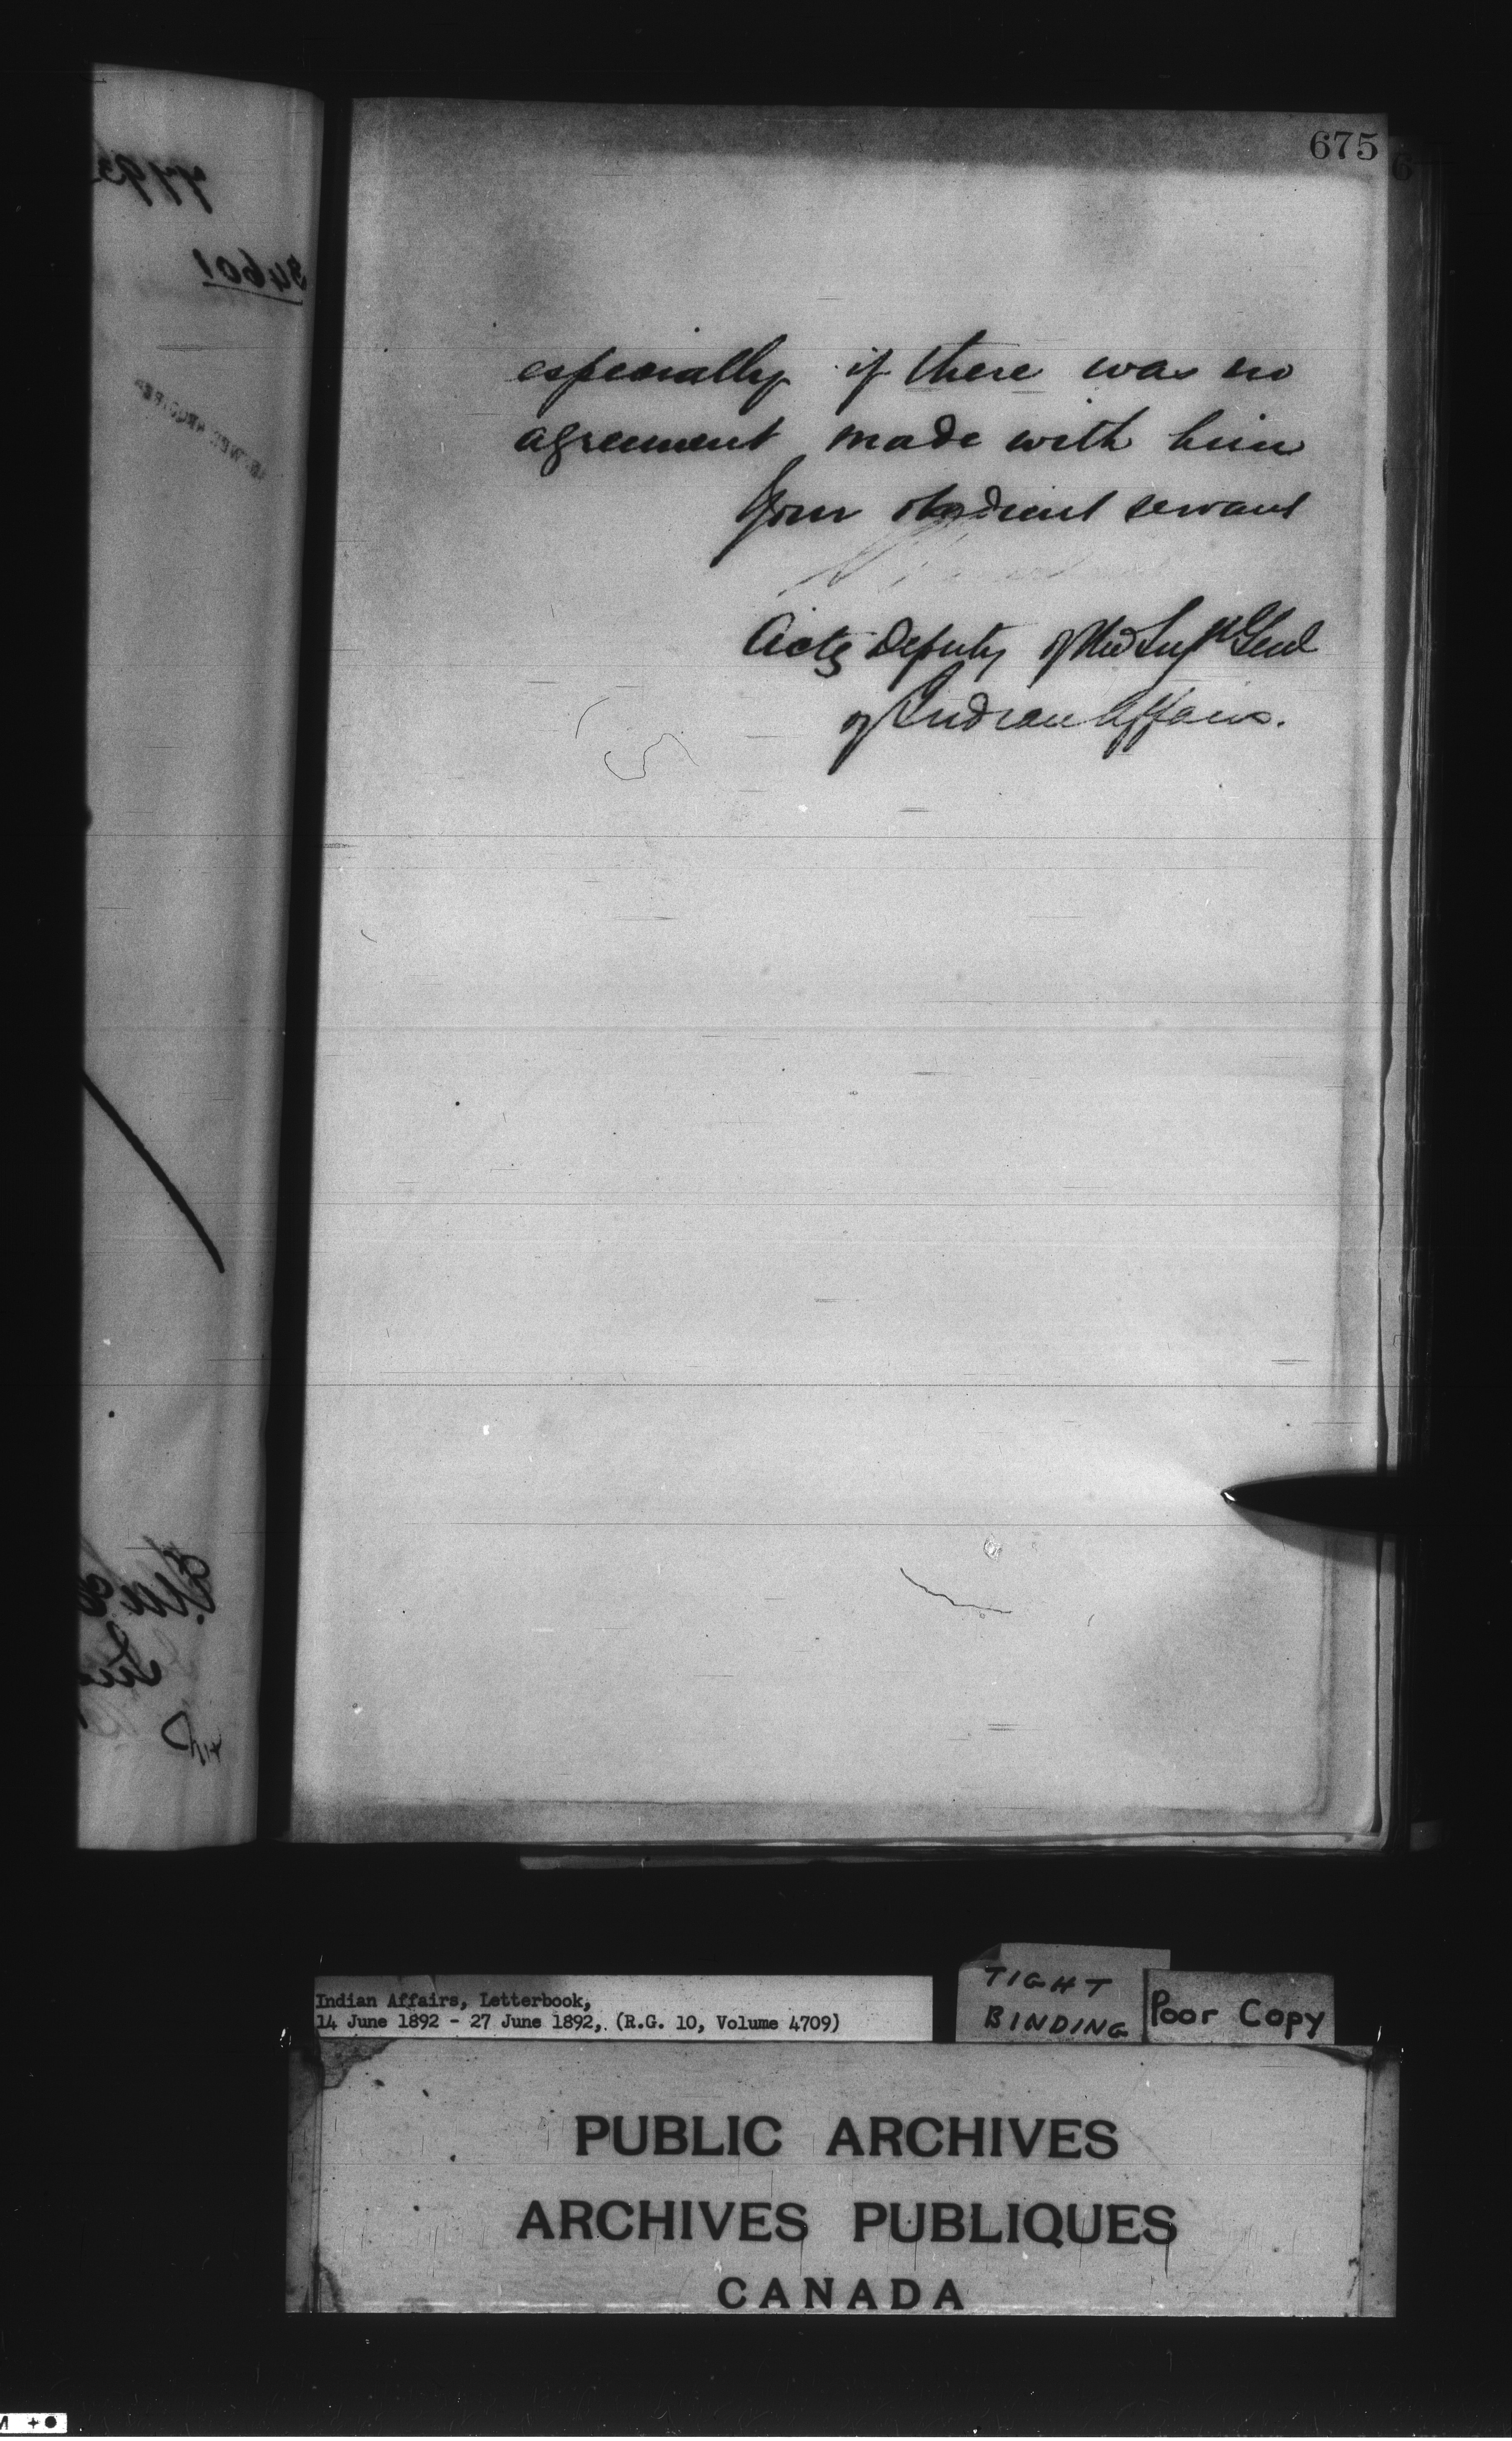 675
especially if there was no
agreement made with him
Your obedient servant
Actg Deputy of the Supt Genl
of Indian Affairs.
34601
Indian Affairs, Letterbook,
14 June 1892 - 27 June 1892, (R.G. 10, Volume 4709)
TIGHT
BINDING
Poor Copy
PUBLIC ARCHIVES
ARCHIVES PUBLIQUES
CANADA